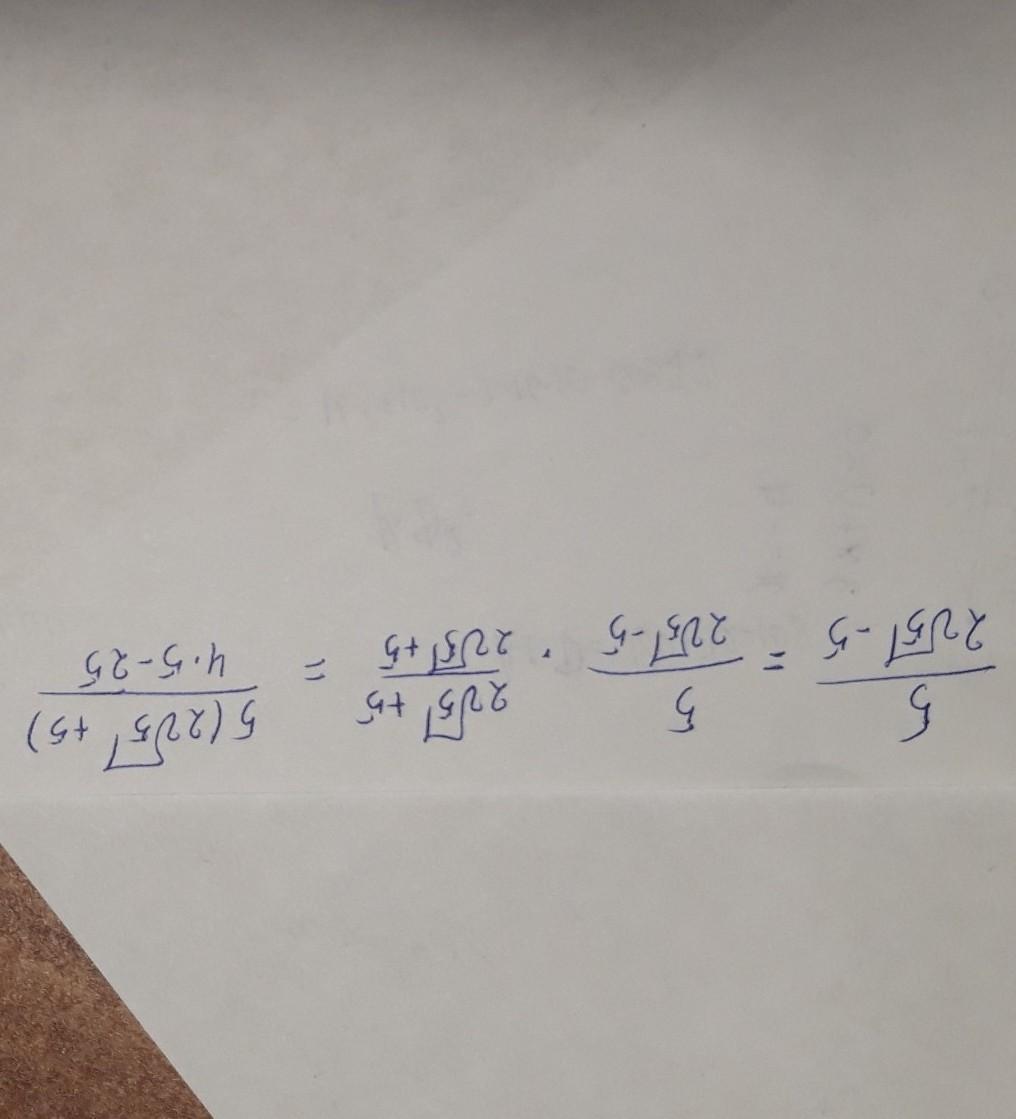 5/(2√5 - 5) = 5/(2√5 - 5) · (2√5 + 5)/(2√5 + 5) = 5(2√5 + 5)/(4·5 - 25)